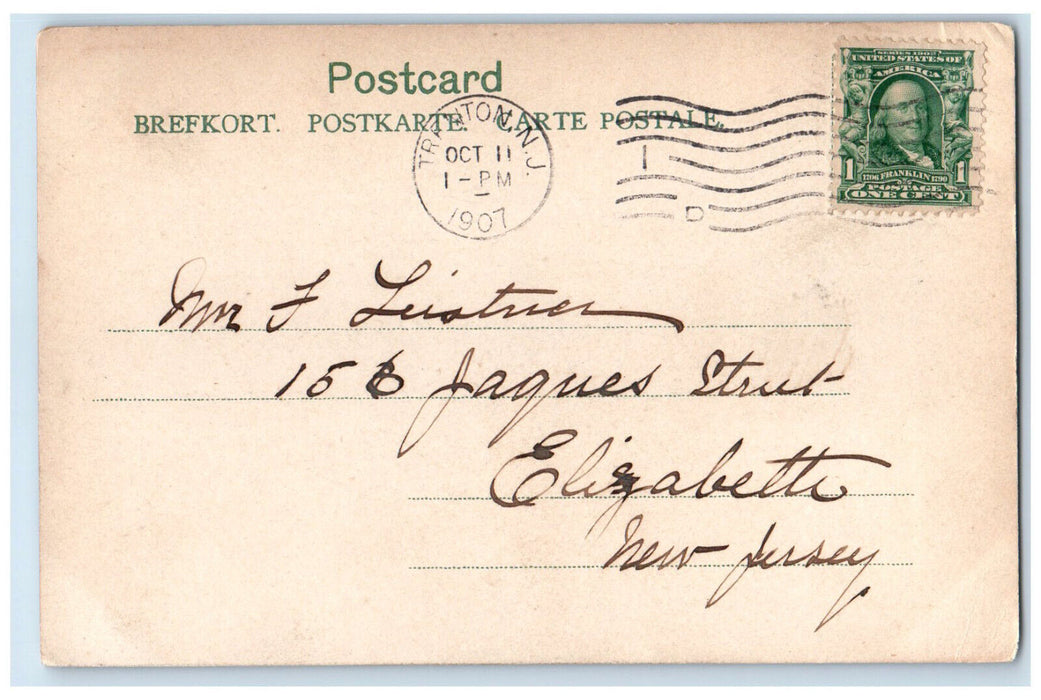 Postcard
BREFKORT. POSTKARTE. CARTE POSTALE.
TRENTON, N.J.
OCT 11
1 - PM
1907
1
D
SERIES 1902
UNITED STATES OF
AMERICA
1706 FRANKLIN 1790
1 POSTAGE 1
ONE CENT
Mr F Leistner
156 Jaques Street
Elizabeth
New Jersey